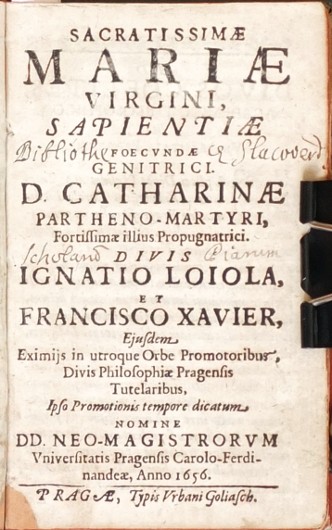 SACRATISSIMÆ
MARIÆ
VIRGINI,
SAPIENTIÆ
Bibliothe FOECVNDÆ
GENITRICI.
D. CATHARINÆ
PARTHENO-MARTYRI,
Fortissimæ illius Propugnatrici.
DIVIS Piarum
IGNATIO LOIOLA,
ET
FRANCISCO XAVIER,
Ejusdem
Eximijs in utroque Orbe Promotoribus,
Divis Philosophiæ Pragensis
Tutelaribus,
Ipso Promotionis tempore dicatum
NOMINE
DD. NEO-MAGISTRORVM
Vniversitatis Pragensis Carolo-Ferdi-
nandeæ, Anno 1656.
PRAGÆ, Typis Vrbani Goliasch.